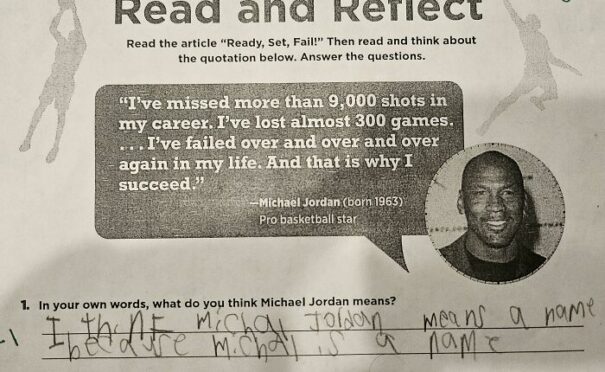 Read and Reflect
Read the article “Ready, Set, Fail!” Then read and think about
the quotation below. Answer the questions.
“I’ve missed more than 9,000 shots in
my career. I’ve lost almost 300 games.
. . . I’ve failed over and over and over
again in my life. And that is why I
succeed.”
—Michael Jordan (born 1963)
Pro basketball star
1. In your own words, what do you think Michael Jordan means?
I thinE Michal Joldan means a name
-1
because michal is a name